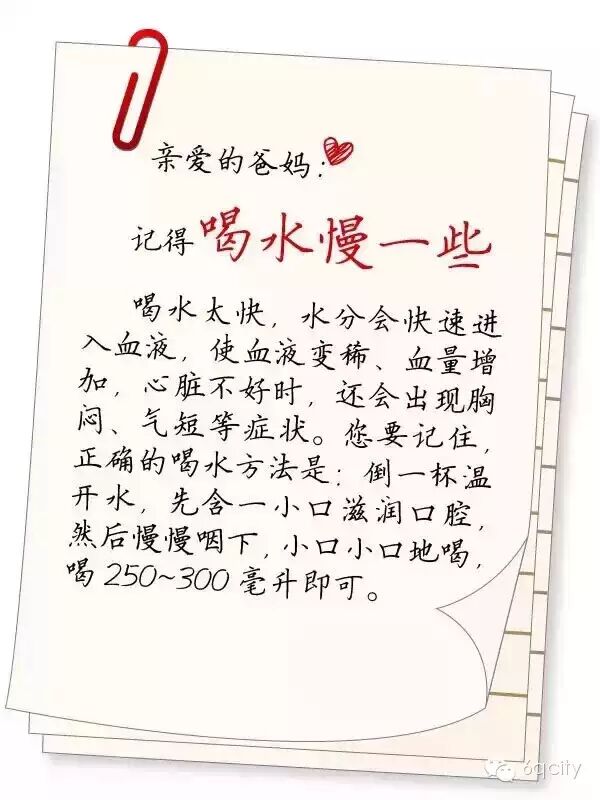 亲爱的爸妈：
记得喝水慢一些
喝水太快，水分会快速进
入血液，使血液变稀、血量增
加，心脏不好时，还会出现胸
闷、气短等症状。您要记住，
正确的喝水方法是：倒一杯温
开水，先含一小口滋润口腔，
然后慢慢咽下，小口小口地喝，
喝250~300毫升即可。
6qcity